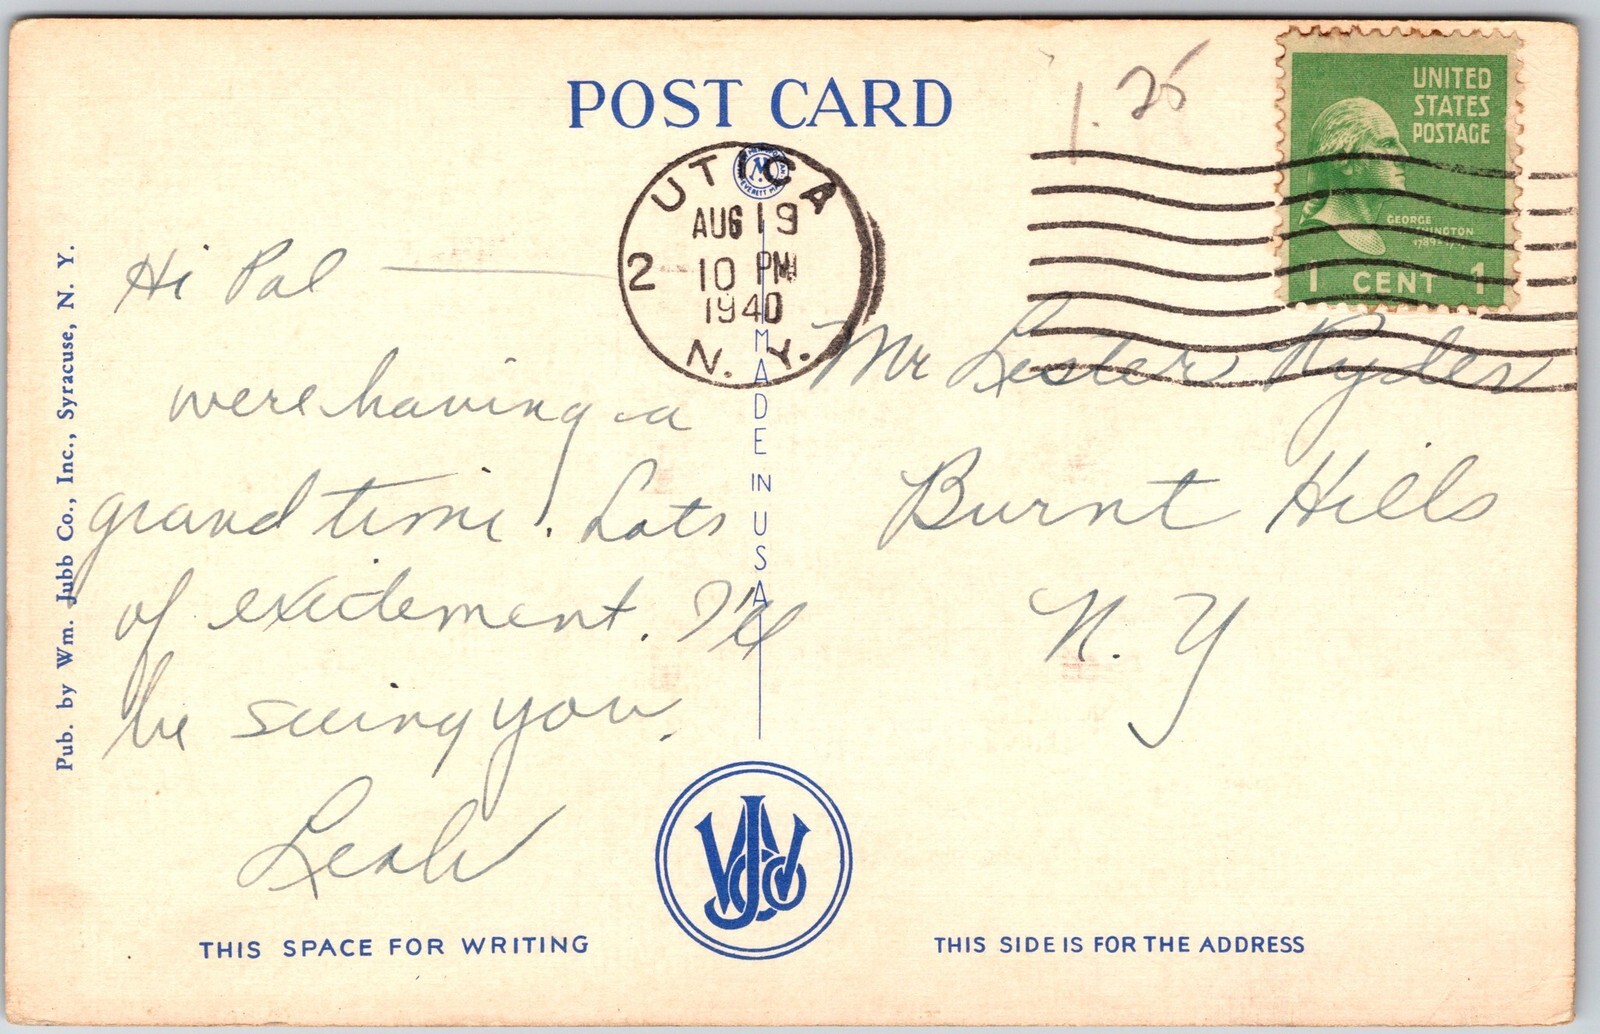 POST CARD
1.25
UNITED
STATES
POSTAGE
GEORGE
1 CENT 1
UTICA
AUG 19
2 10 PM
1940
N. Y.
Hi Pal
were having a
grand time. Lots
of exictement. I'll
be seeing you.
Leah
Mr Lester Ryder
Burnt Hills
N. Y
MADE IN USA
Pub. by Wm. Jubb Co., Inc., Syracuse, N. Y.
THIS SPACE FOR WRITING
THIS SIDE IS FOR THE ADDRESS